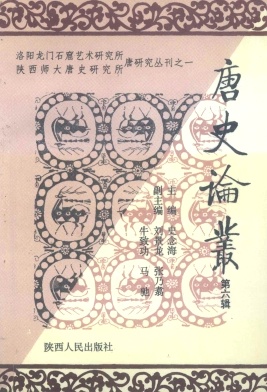 洛阳龙门石窟艺术研究所
陕西师大唐史研究所
唐研究丛刊之一
唐史论丛
第六辑
主编 史念海
副主编 刘景龙 张乃翥
牛致功 马驰
陕西人民出版社